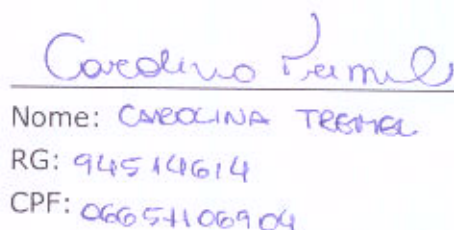 Carolina Tremel
Nome: CAROLINA TREMEL
RG: 94514614
CPF: 06651106904